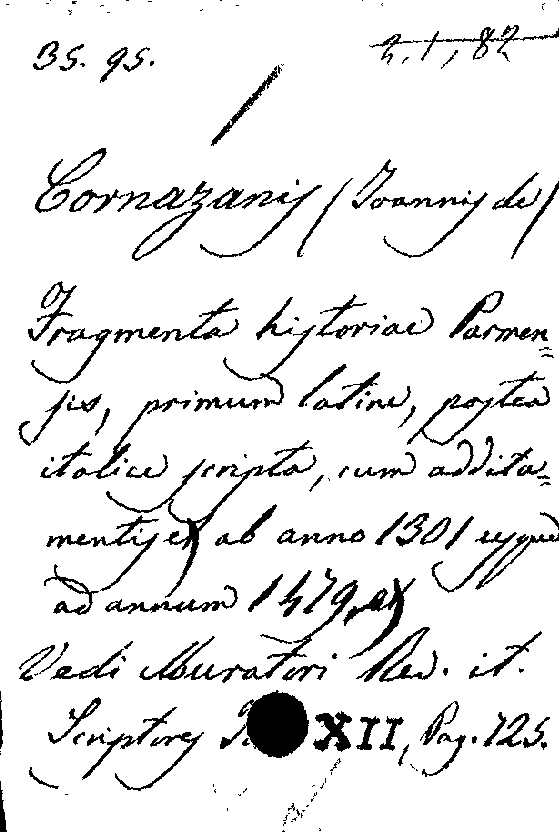 35. 95.
2.1,82
Cornazanis (Joannis de)
Fragmenta historiae Parmen=
sis, primum latine, postea
italice scripta, cum addita=
mentis ab anno 1301 usque
ad annum 1479,
Vedi Muratori Rer. it.
Scriptores XII, Pag. 725.